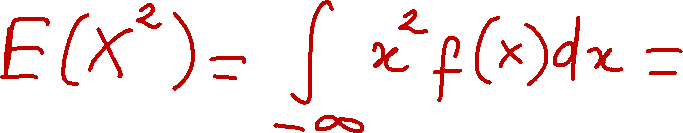 E(X²) = ∫_{-∞} x² f(x) dx =